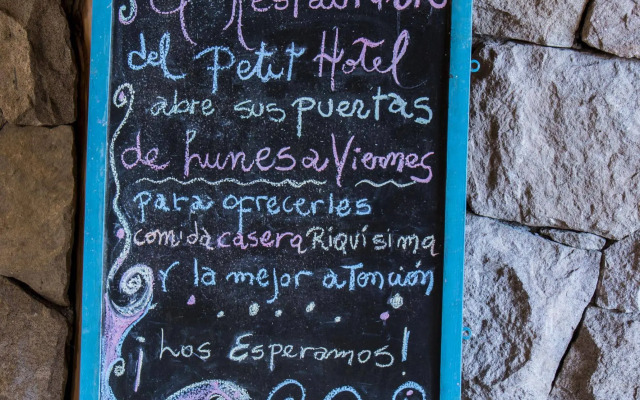 El Restaurante
del Petit Hotel
abre sus puertas
de Lunes a Viernes
para ofrecerles
comida casera Riquísima
Y la mejor atención
¡Los Esperamos!